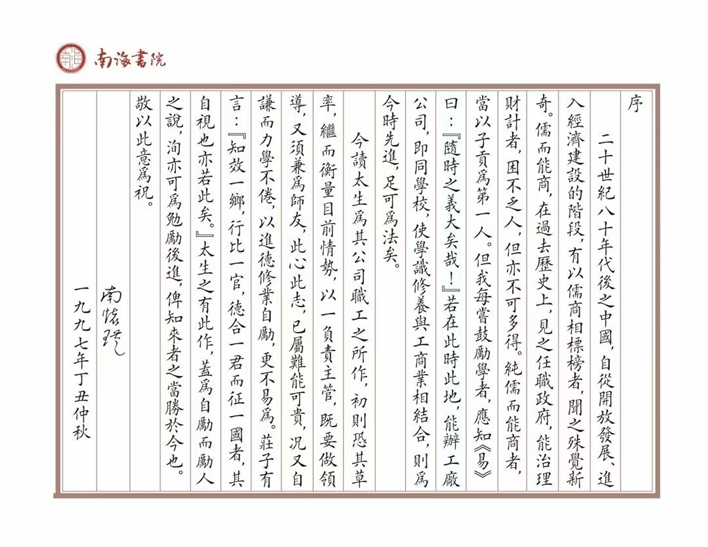 南海書院
序
二十世紀八十年代後之中國，自從開放發展、進
入經濟建設的階段，有以儒商相標榜者，聞之殊覺新
奇。儒而能商，在過去歷史上，見之任職政府，能治理
財計者，固不乏人，但亦不可多得。純儒而能商者，
當以子貢爲第一人。但我每嘗鼓勵學者，應知《易》
曰：『隨時之義大矣哉！』若在此時此地，能辦工廠
公司，即同學校，使學識修養與工商業相結合，則爲
今時先進，足可爲法矣。
今讀太生爲其公司職工之所作，初則恐其草
率，繼而衡量目前情勢，以一負責主管，既要做領
導，又須兼爲師友，此心此志，已屬難能可貴，況又自
謙而力學不倦，以進德修業自勵，更不易爲。莊子有
言：『知效一鄉，行比一官，德合一君而征一國者，其
自視也亦若此矣。』太生之有此作，蓋爲自勵而勵人
之說，洵亦可爲勉勵後進，俾知來者之當勝於今也。
敬以此意爲祝。
南懷瑾
一九九七年丁丑仲秋